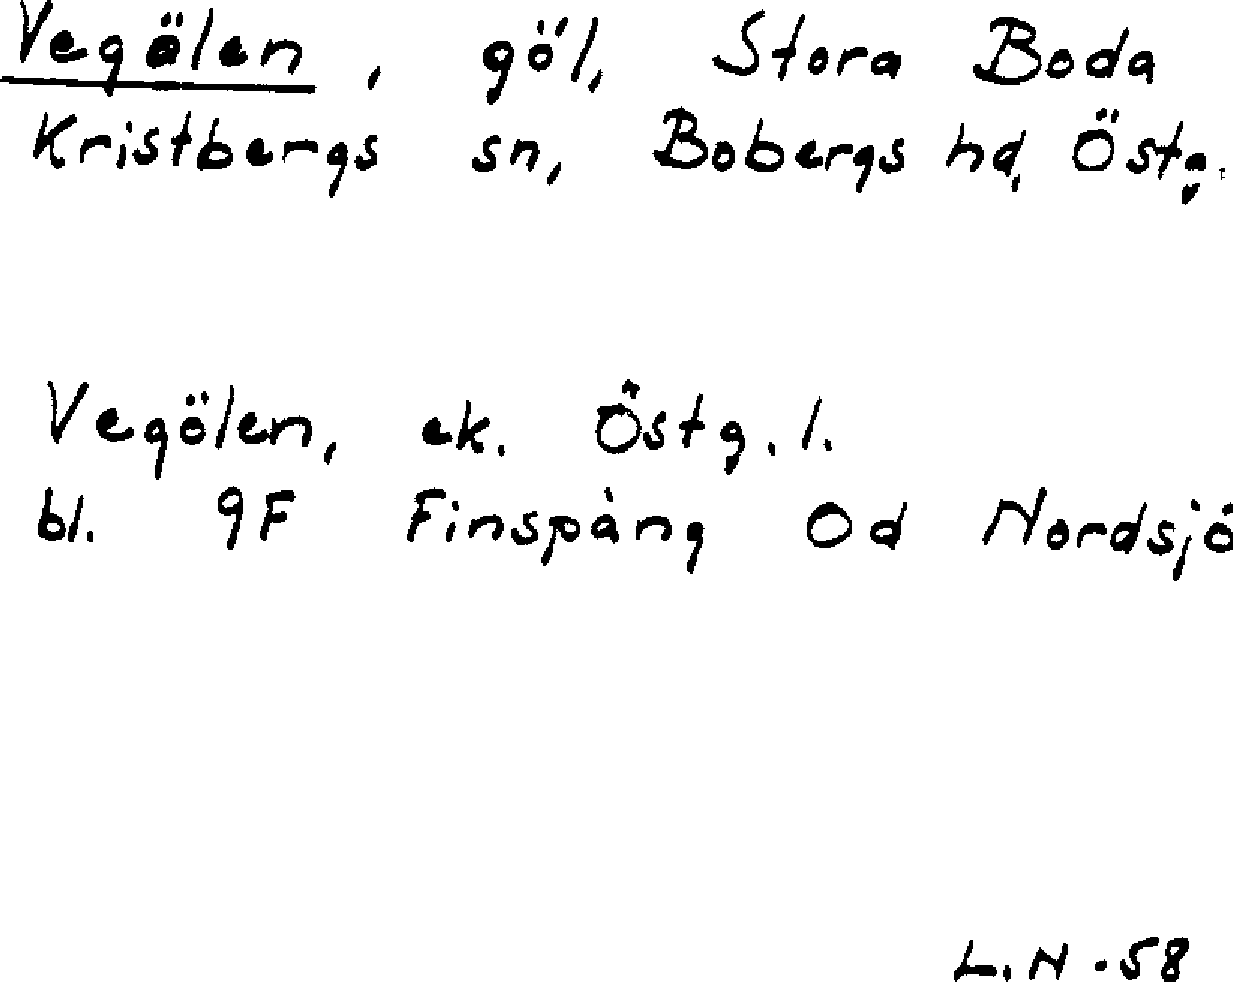 Vegölen, göl, Stora Boda
Kristbergs sn, Bobergs hd, Östg.
Vegölen, ek. Östg. l.
bl. 9F Finspång 0d Nordsjö
L.N -58